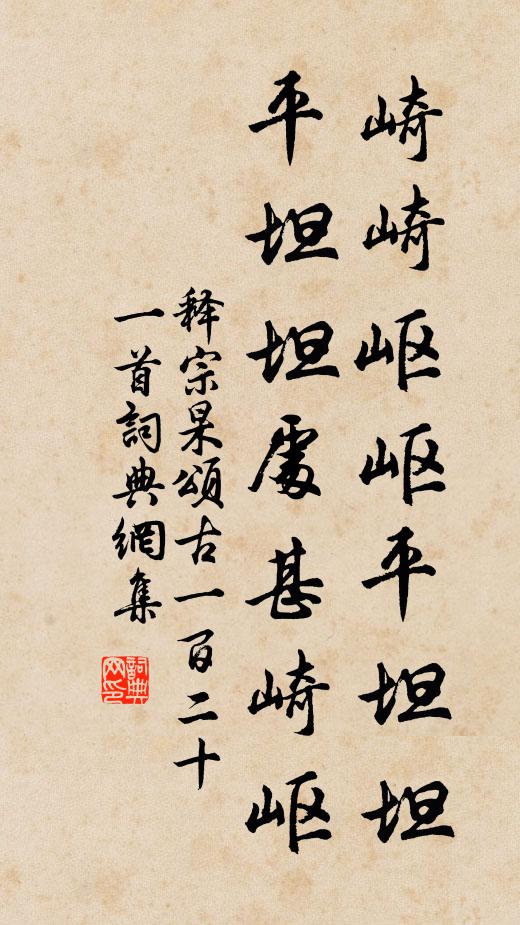 崎崎岖岖平坦坦
平坦坦處甚崎岖
释宗杲頌古一百二十
一首詞典網集
詞典网印